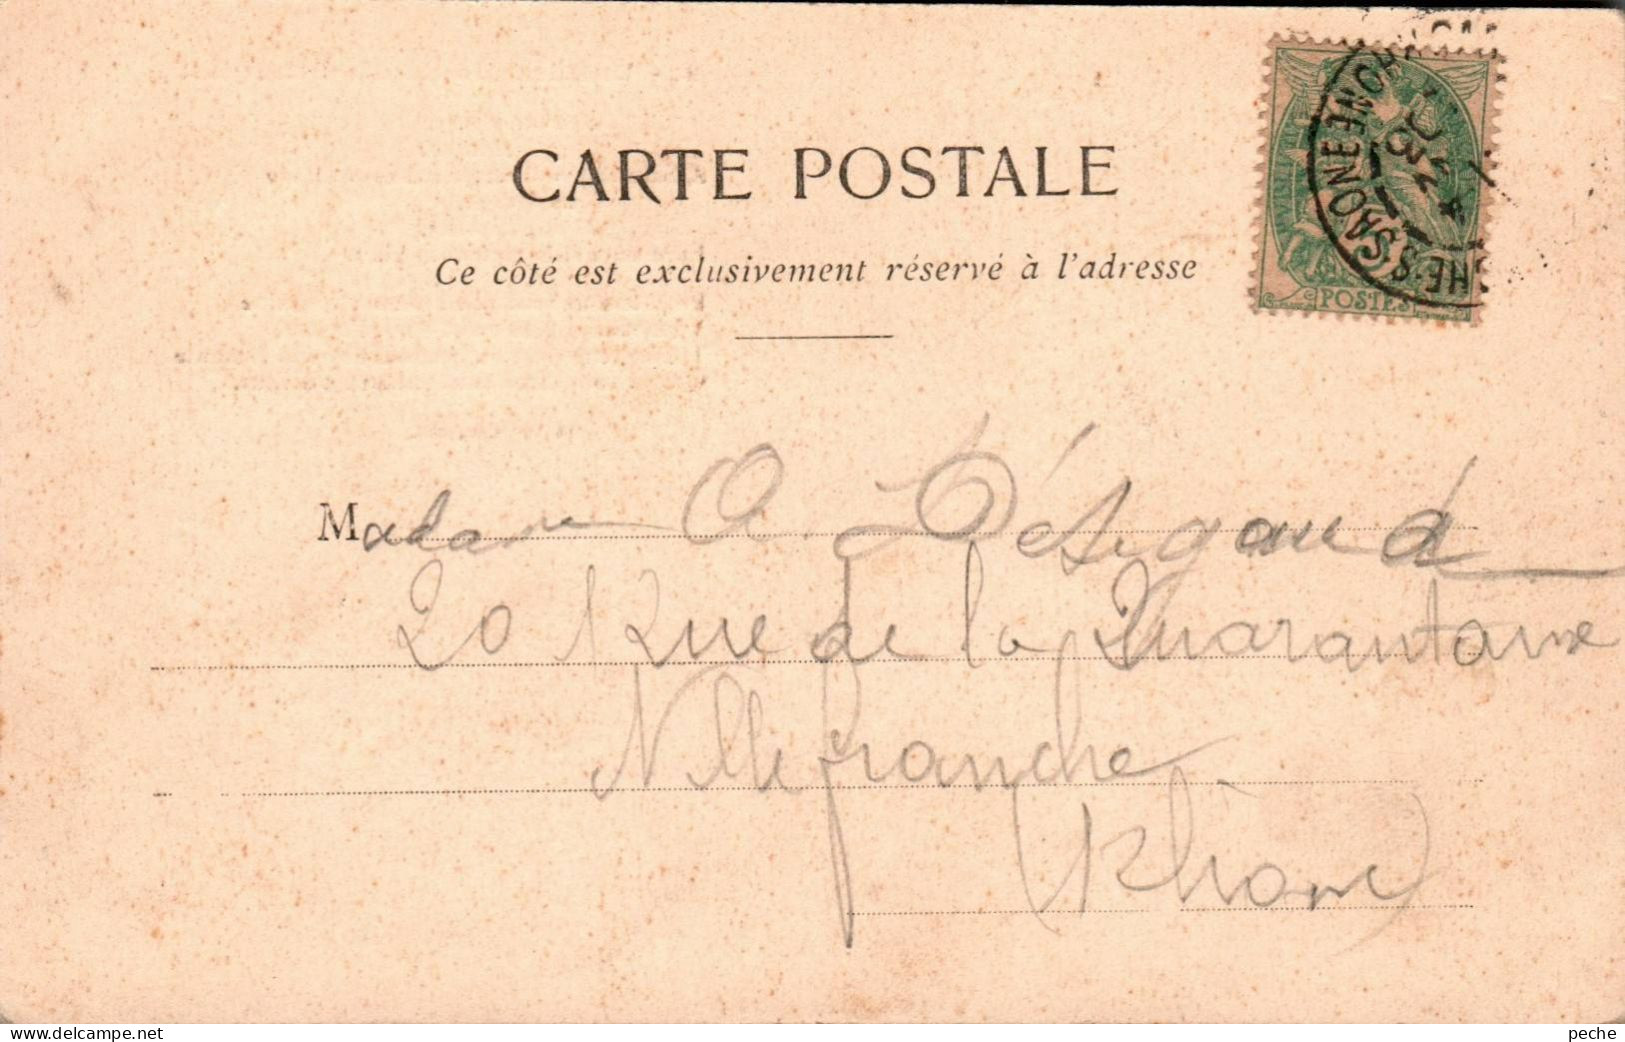 CARTE POSTALE
Ce côté est exclusivement réservé à l'adresse
POSTES
Madame A. Désigaud
20 Rue de la Quarantaine
Villefranche
(Rhône)
www.delcampe.net
peche